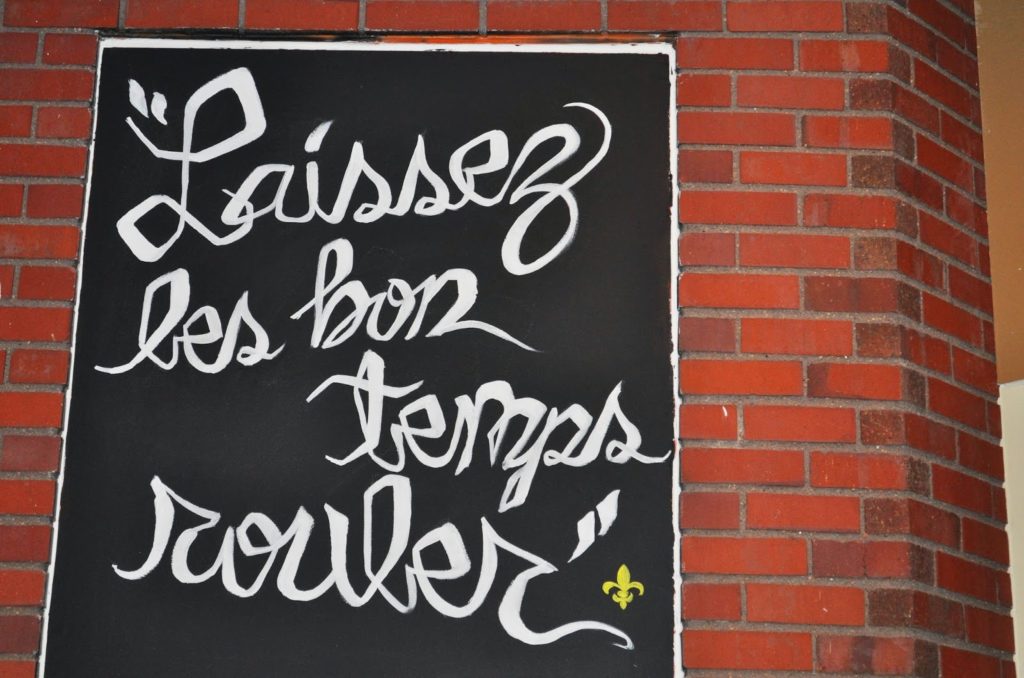 "Laissez
les bon
temps
rouler"